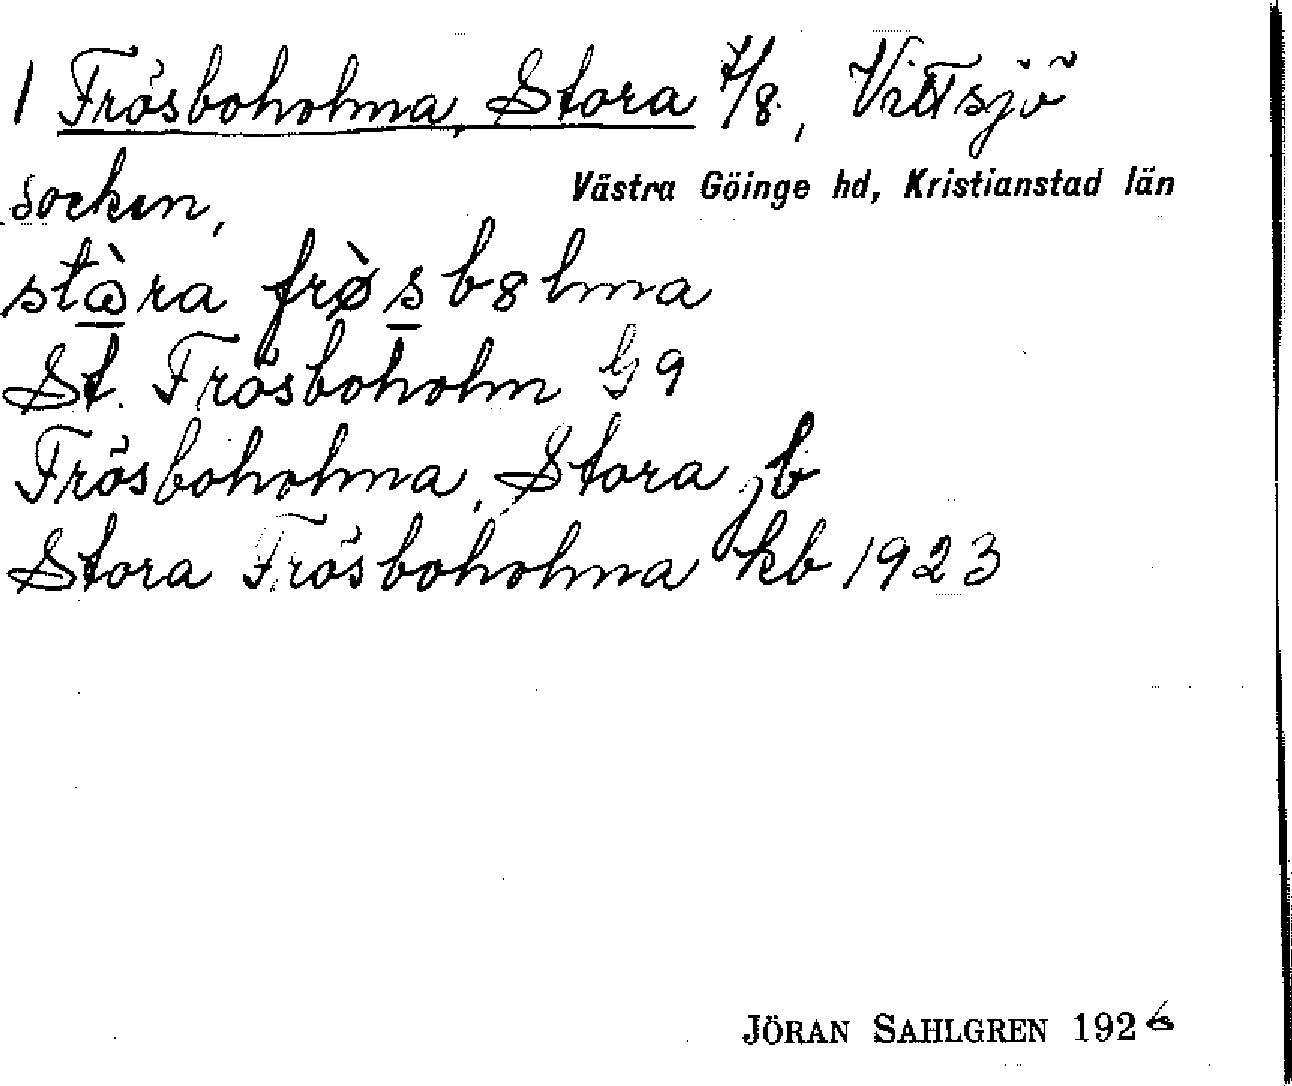 1 Frösboholma, Stora 7/8, Vittsjö
socken, Västra Göinge hd, Kristianstad län
stὼra frø̀sb8lma
St. Frösboholm G 9
Frösboholma, Stora jb
Stora Frösboholma kb 1923
JÖRAN SAHLGREN 1926